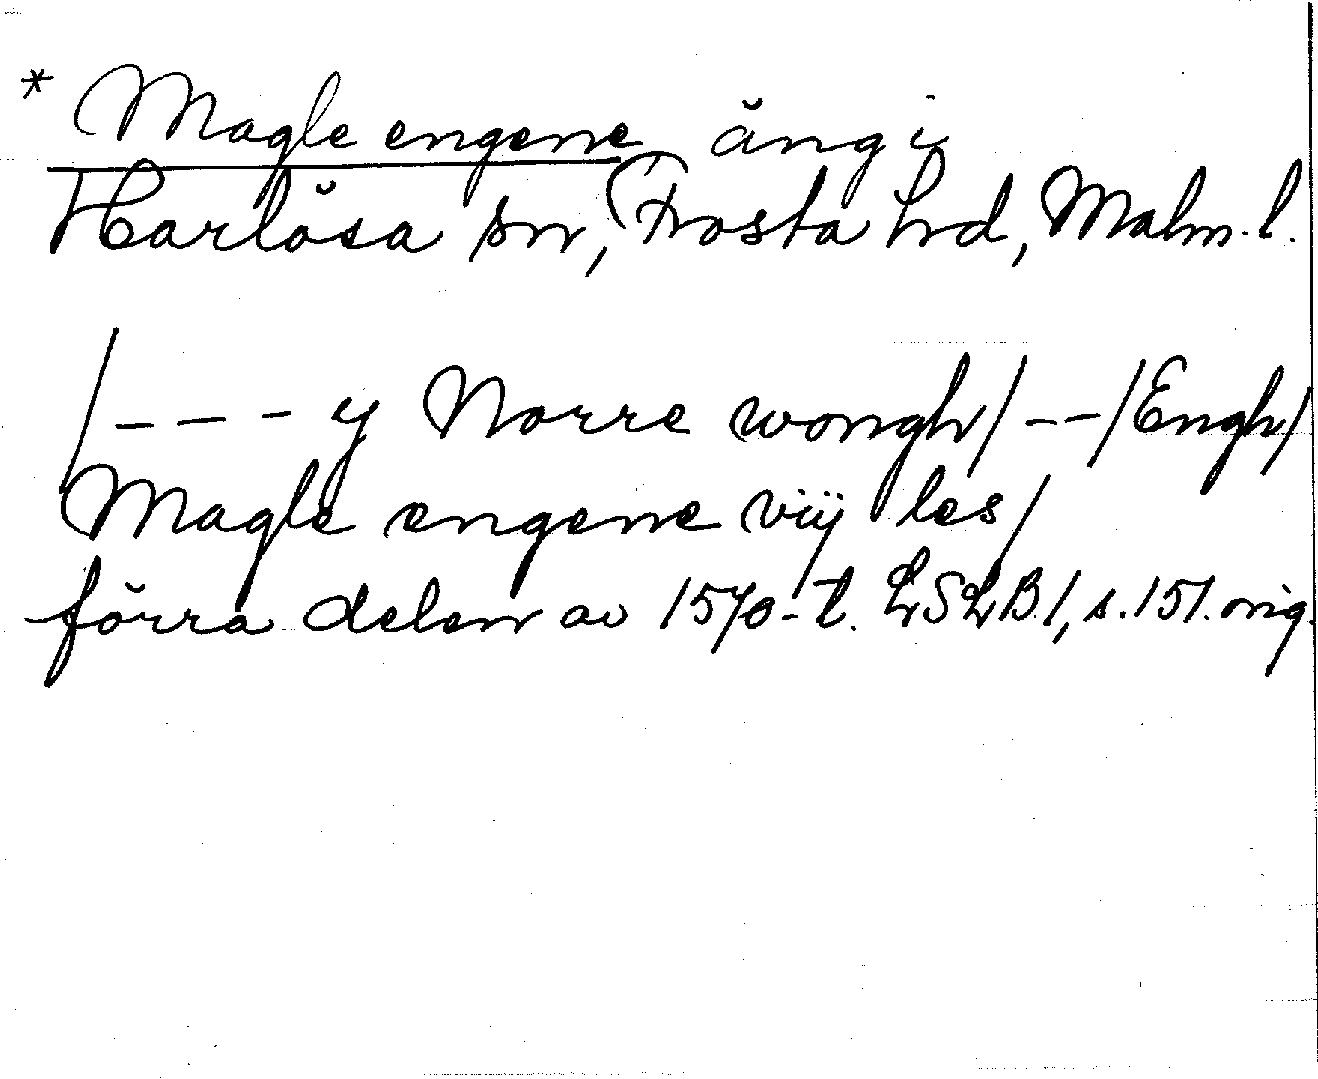 * Magle engene äng i
Harlösa sn, Frosta hd, Malm. l.
/--- y Norre wongh/--/Engh/
Magle engene vij les/
förra delen av 1570-t. LSLB 1, s. 151. orig.